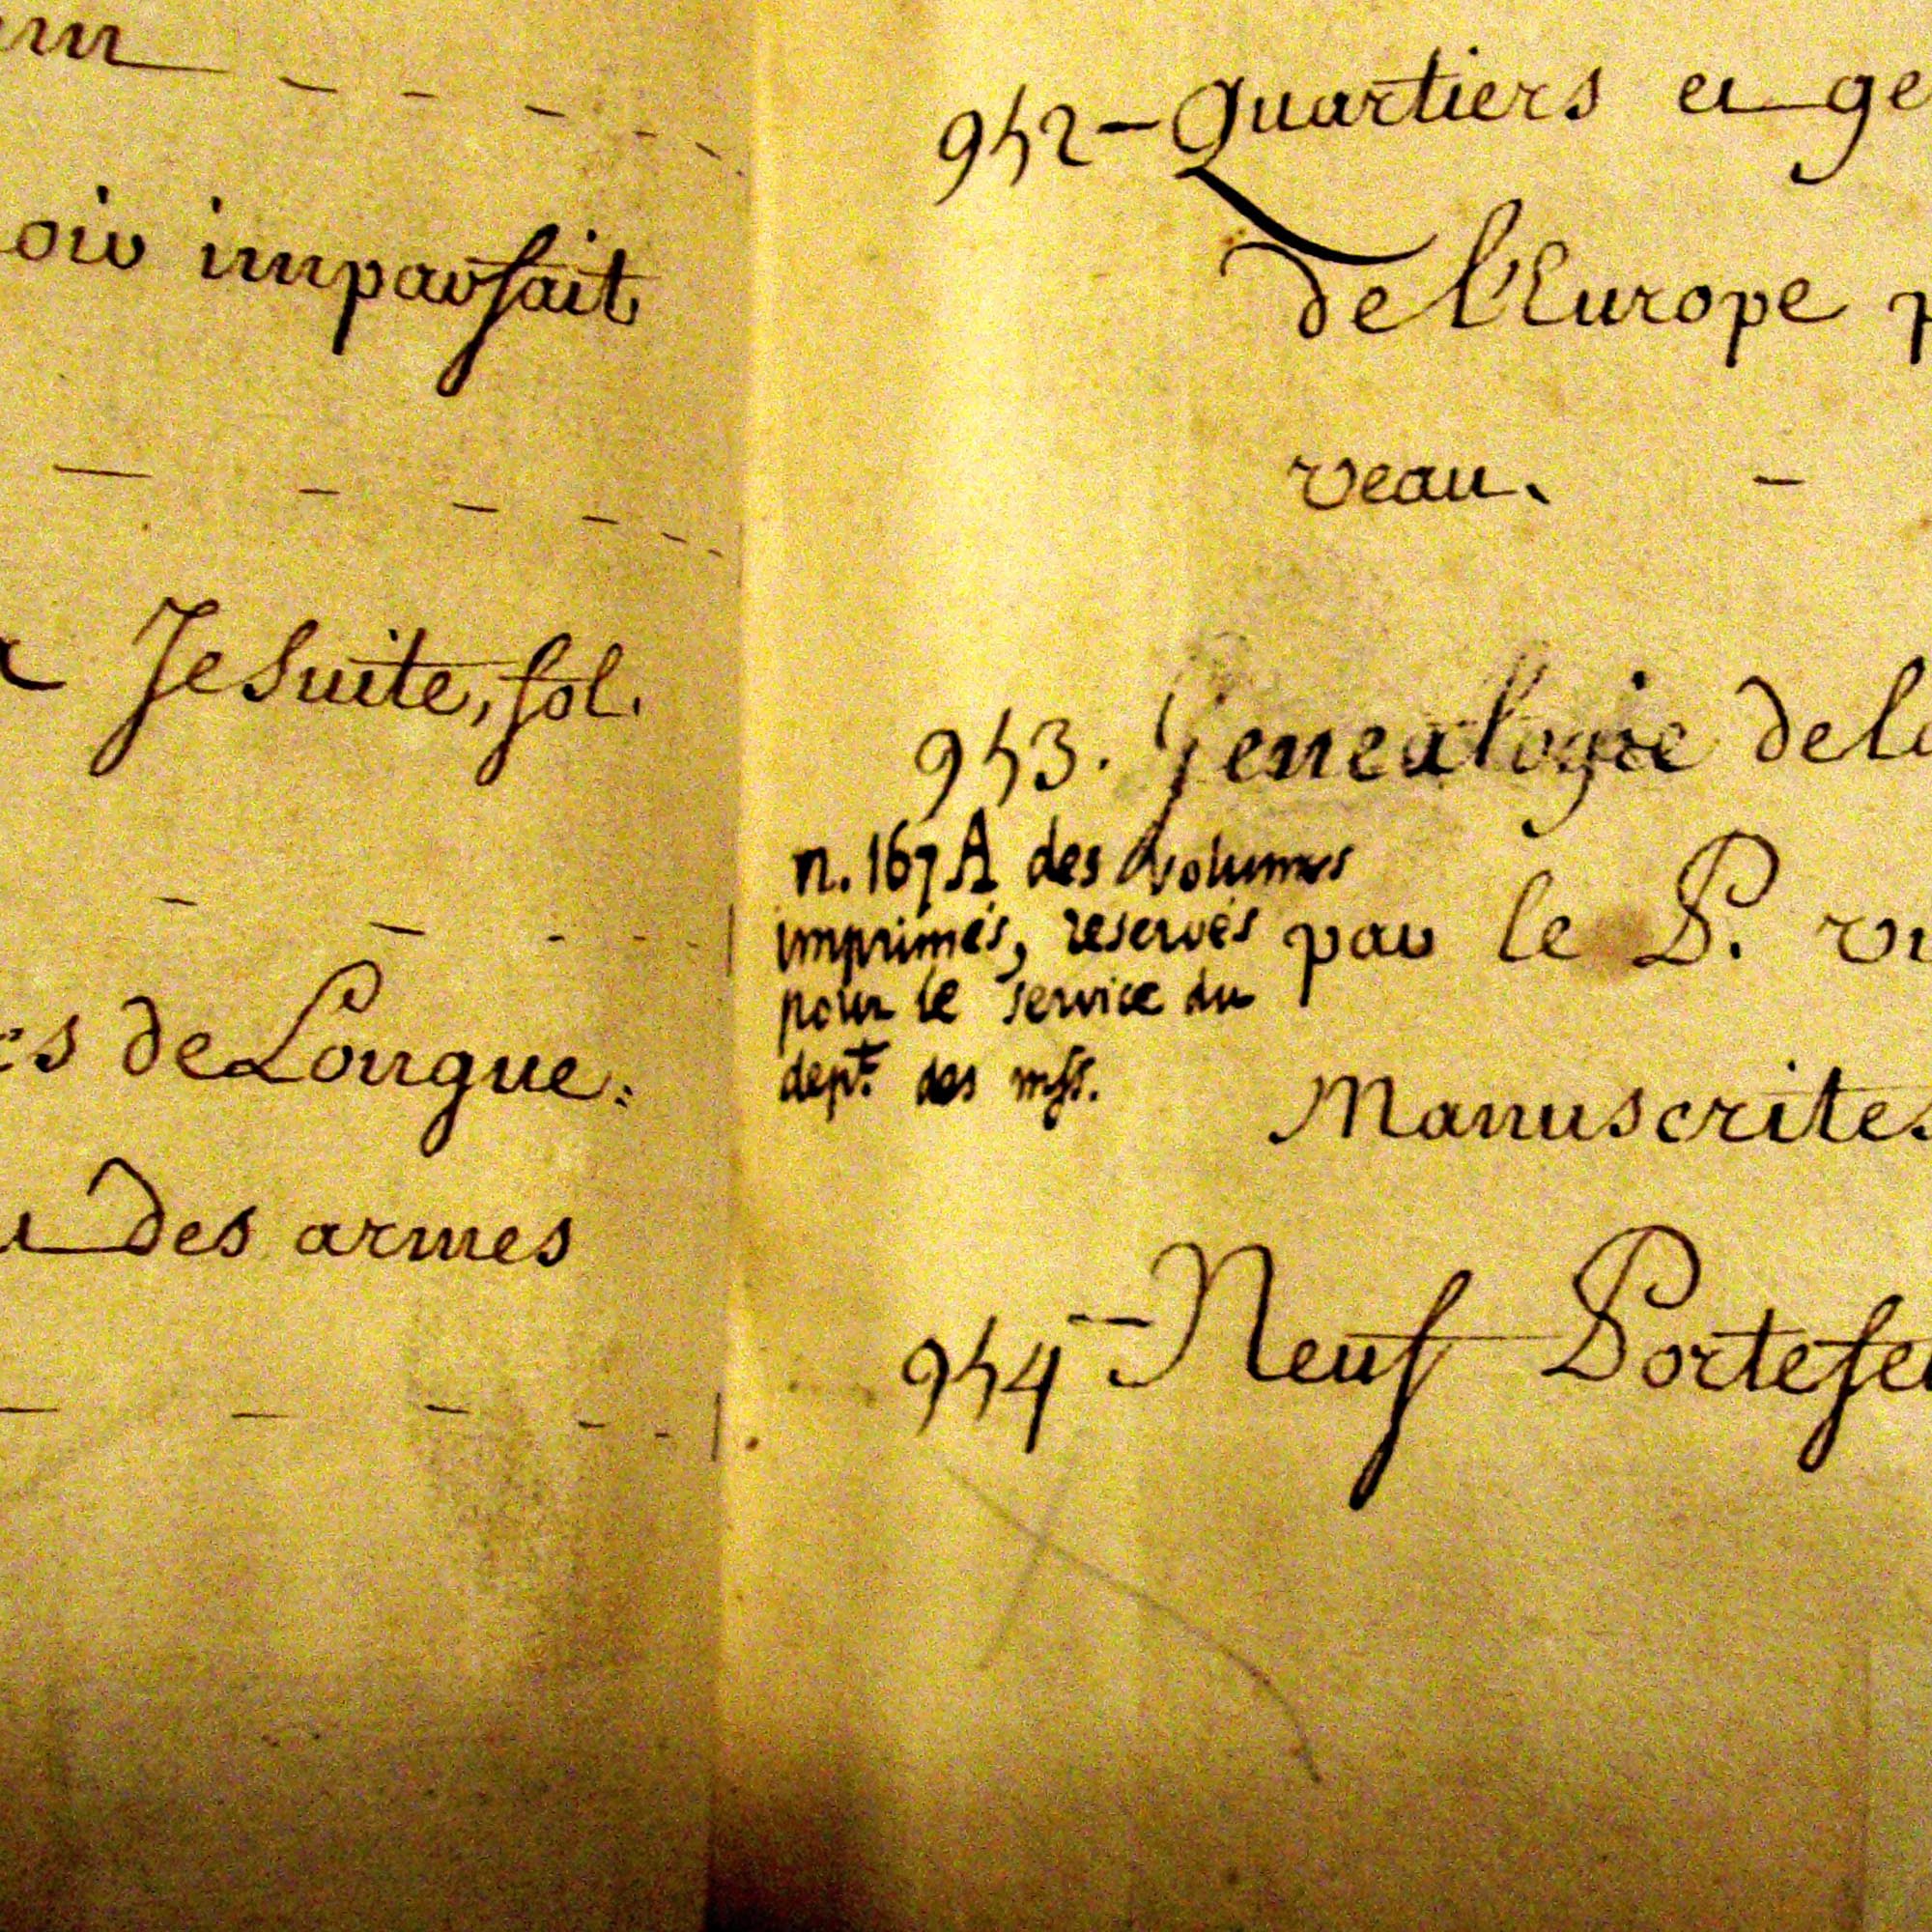 oir imparfait
Jesuite, fol.
es de Longue:
des armes
952 – Quartiers et ge
de l'Europe p
veau. –
953. Genealogie de la
n. 167 A des volumes
imprimés, reservés
pour le service du
dept. des mss.
par le P.
Manuscrites
954 – Neuf Portefeu